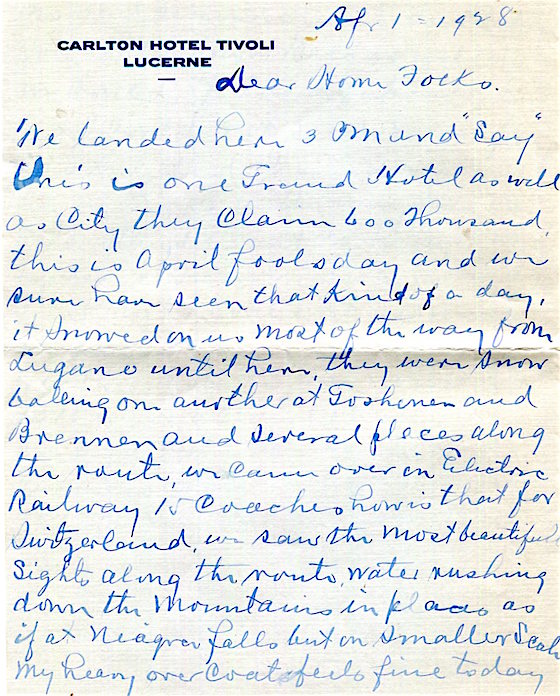 Apr 1 = 1928
CARLTON HOTEL TIVOLI
LUCERNE
Dear Home Folks.
We landed here 3 PM and "Say"
this is one Grand Hotel as well
as City they Claim 600 Thousand,
this is April fools day and we
sure have seen that kind of a day,
it snowed on us most of the way from
Lugano until here, they were snow
balling one another at Goshenen and
Brennen and several places along
the route, we came over in Electric
Railway 15 Coaches how is that for
Switzerland, we saw the most beautiful
Sights along the route, water rushing
down the Mountains in places as
if at Niagra falls but on smaller Scale
My heavy over Coat feels fine today